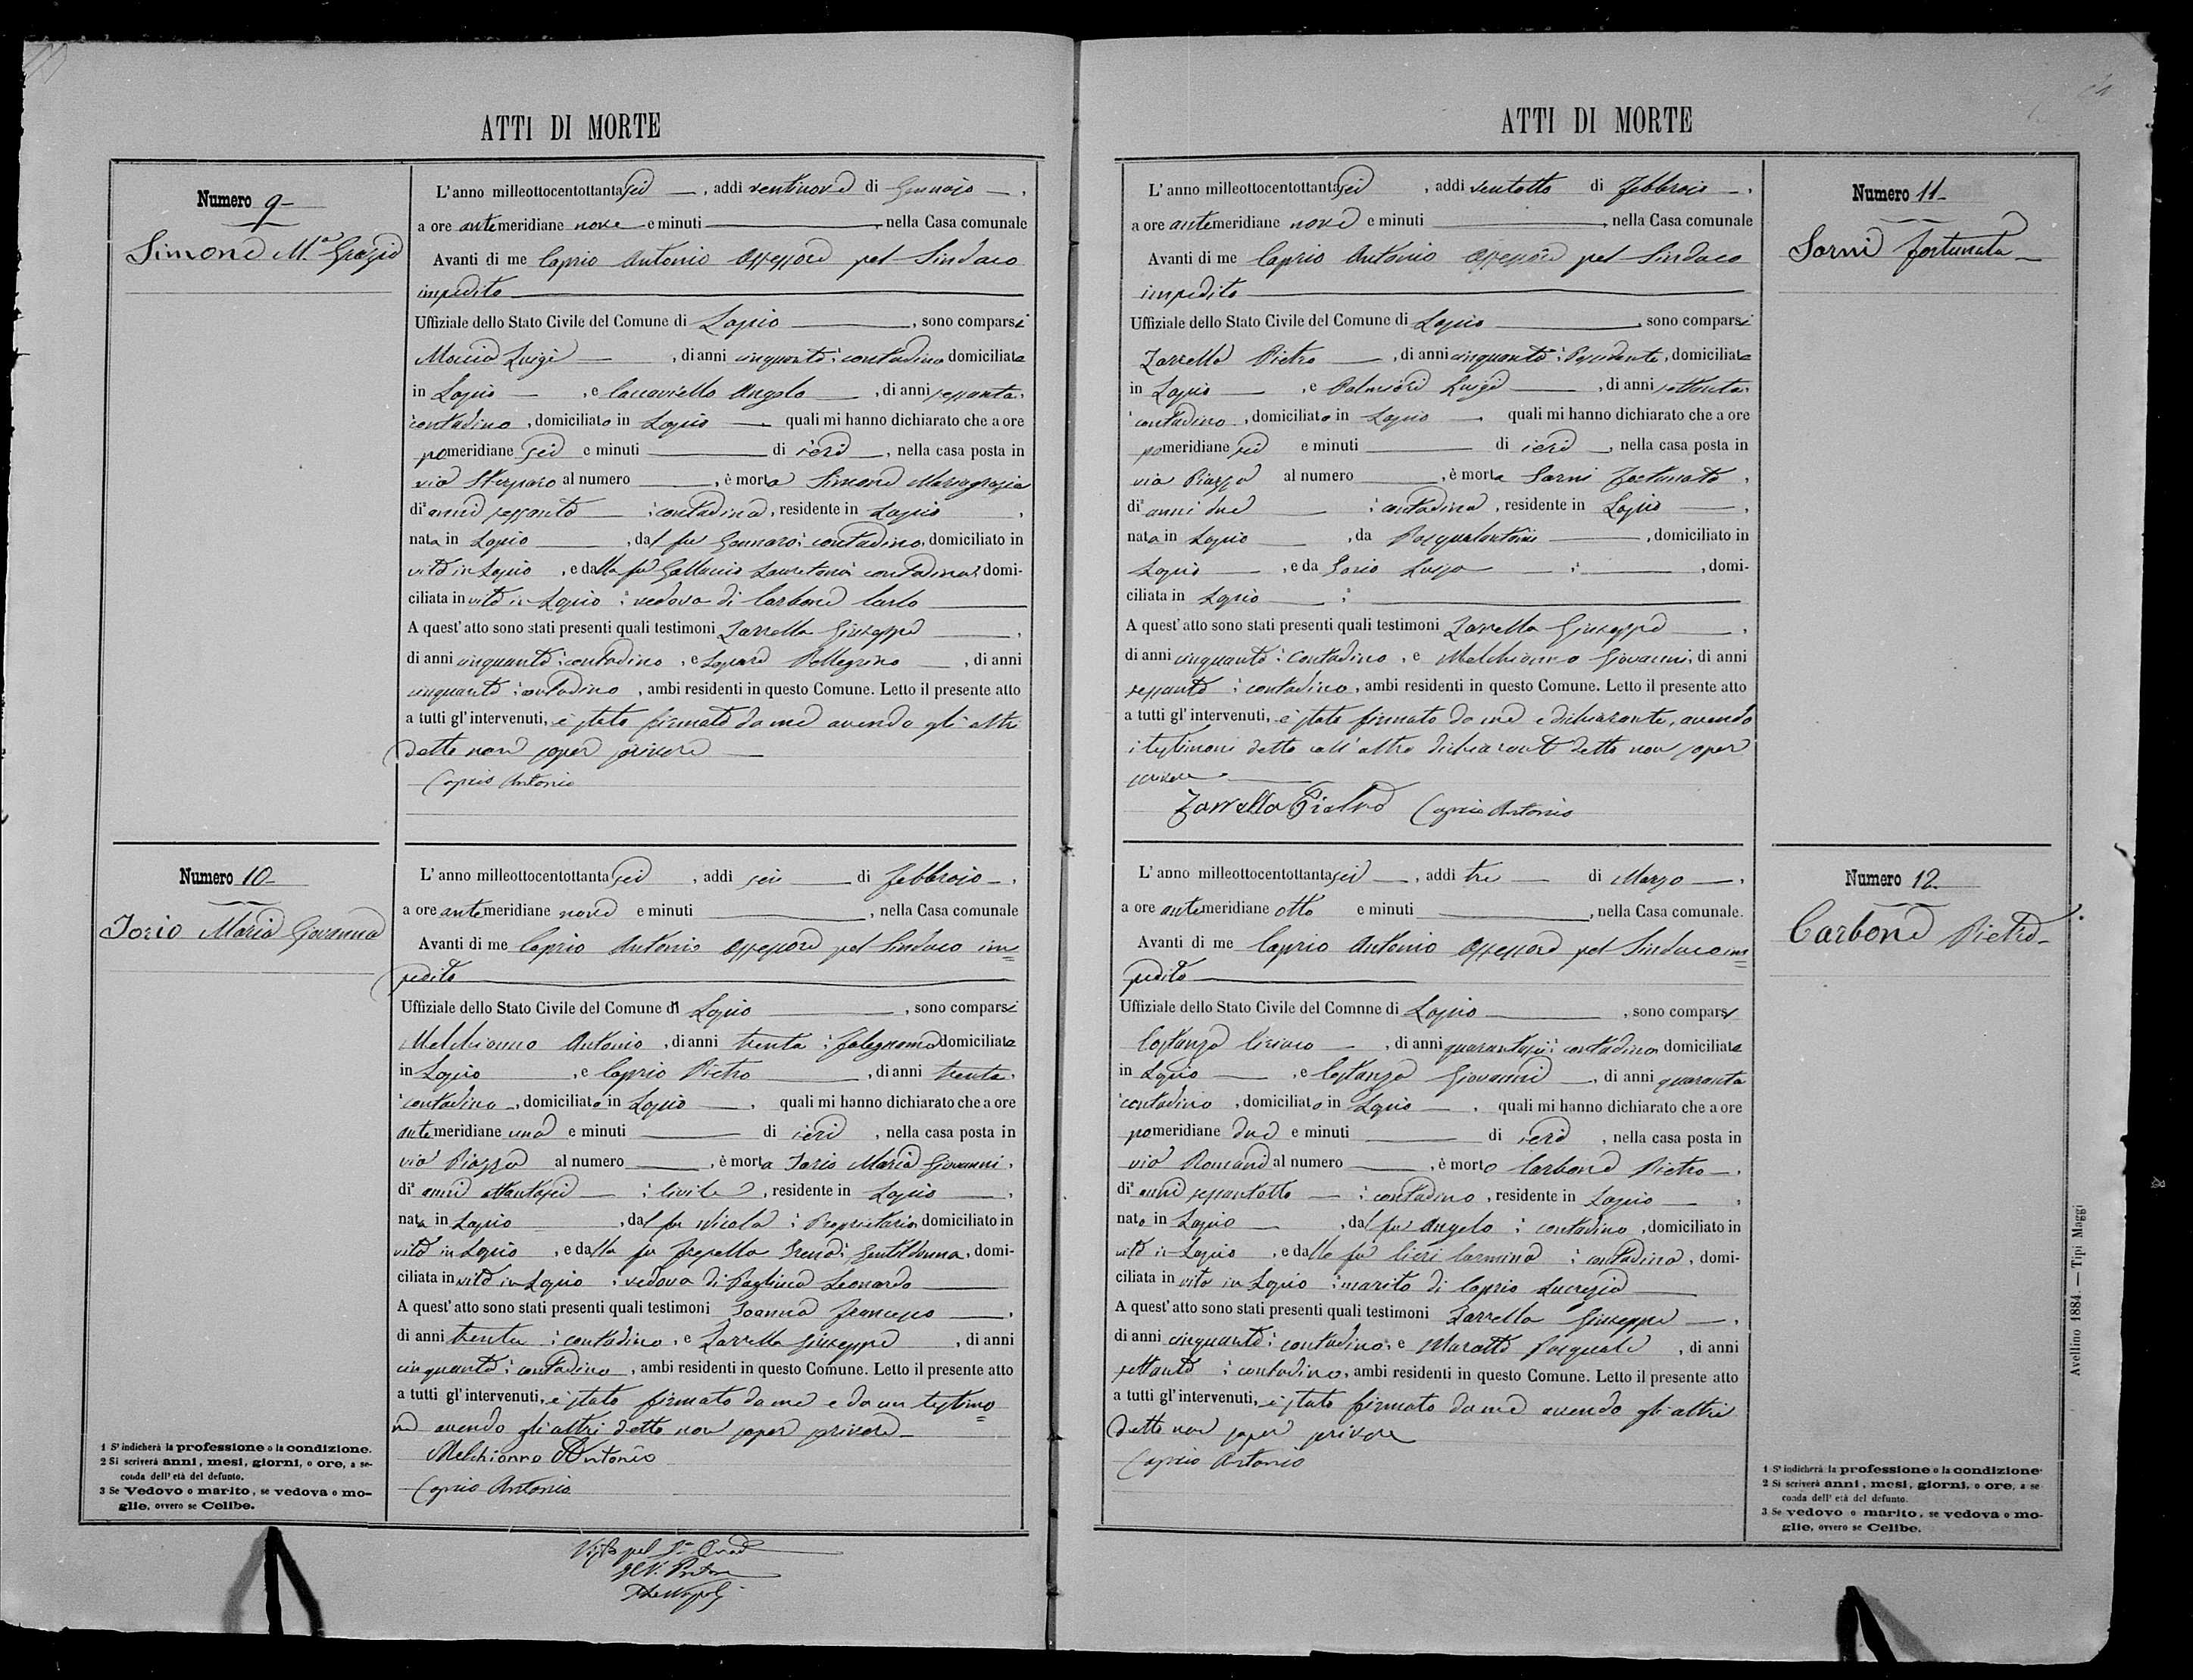 ATTI DI MORTE
Numero 9
Simone M.a Grazia
L'anno milleottocentottantasei, addi ventinove di Gennaio,
a ore antemeridiane nove e minuti, nella Casa comunale
Avanti di me Caprio Antonio Assessore pel Sindaco
impedito
Uffiziale dello Stato Civile del Comune di Lapio, sono comparsi
Moccia Luigi, di anni cinquanta contadino domiciliato
in Lapio, e Caccaviello Angelo, di anni sessanta
contadino, domiciliato in Lapio quali mi hanno dichiarato che a ore
pomeridiane sei e minuti di ieri, nella casa posta in
via al numero, è morta Simone Mariagrazia
di2 anni sessanta contadina, residente in Lapio,
nata in Lapio, dal fu Gennaro contadino, domiciliato in
vita in Lapio, e dalla fu Galluccio contadina, domi-
ciliata in vita in Lapio vedova di Carbone Carlo
A quest'atto sono stati presenti quali testimoni Zarrella Giuseppe,
di anni cinquanta contadino, e Pellegrino, di anni
cinquanta contadino, ambi residenti in questo Comune. Letto il presente atto
a tutti gl'intervenuti, è stato firmato da me avendo gli altri
detto non saper scrivere
Caprio Antonio
Numero 10
Iorio Maria Giovanna
L'anno milleottocentottantasei, addi sei di Febbraio,
a ore antemeridiane nove e minuti, nella Casa comunale
Avanti di me Caprio Antonio Assessore pel Sindaco im=
pedito
Uffiziale dello Stato Civile del Comune di Lapio, sono comparsi
Melchionno Antonio, di anni trenta falegname domiciliato
in Lapio, e Caprio Pietro, di anni trenta
contadino, domiciliato in Lapio, quali mi hanno dichiarato che a ore
antemeridiane una e minuti di ieri, nella casa posta in
via Piazza al numero, è morta Iorio Maria Giovanni,
di2 anni ottantasei civile, residente in Lapio,
nata in Lapio, dal fu Nicola Proprietario domiciliato in
vita in Lapio, e dalla fu Irena Gentildonna, domi-
ciliata in vita in Lapio vedova di Pagliuca Leonardo
A quest'atto sono stati presenti quali testimoni Ioanna Francesco,
di anni trenta contadino, e Zarrella Giuseppe, di anni
cinquanta contadino, ambi residenti in questo Comune. Letto il presente atto
a tutti gl'intervenuti, è stato firmato da me e da un testimo=
ne avendo gli altri detto non saper scrivere
Melchionno Antonio
Caprio Antonio
1 S'indicherà la professione o la condizione.
2 Si scriverà anni, mesi, giorni, o ore, a se-
conda dell'età del defunto.
3 Se Vedovo o marito, se vedova o mo-
glie, ovvero se Celibe.
ATTI DI MORTE
L'anno milleottocentottantasei, addi ventotto di Febbraio,
a ore antemeridiane nove e minuti, nella Casa comunale
Avanti di me Caprio Antonio Assessore pel Sindaco
impedito
Uffiziale dello Stato Civile del Comune di Lapio, sono comparsi
Zarrella Pietro, di anni cinquanta Possidente, domiciliato
in Lapio, e Palmieri Luigi, di anni settanta
contadino, domiciliato in Lapio quali mi hanno dichiarato che a ore
pomeridiane sei e minuti di ieri, nella casa posta in
via Piazza al numero, è morta Sarni Fortunata,
di2 anni due contadina, residente in Lapio,
nata in Lapio, da Pasqualantonio, domiciliato in
Lapio, e da Iorio Luisa, domi-
ciliata in Lapio
A quest'atto sono stati presenti quali testimoni Zarrella Giuseppe,
di anni cinquanta contadino, e Melchionno Giovanni, di anni
sessanta contadino, ambi residenti in questo Comune. Letto il presente atto
a tutti gl'intervenuti, è stato firmato da me e dichiarante, avendo
i testimoni detto coll'altro dichiarante detto non saper
scrivere
Zarrella Pietro Caprio Antonio
Numero 11
Sarni Fortunata
L'anno milleottocentottantasei, addi tre di Marzo,
a ore antemeridiane otto e minuti, nella Casa comunale.
Avanti di me Caprio Antonio Assessore pel Sindaco im=
pedito
Uffiziale dello Stato Civile del Comnne di Lapio, sono comparsi
Costanza Ciriaco, di anni quarantasei contadino domiciliato
in Lapio, e Costanza Giovanni, di anni quaranta
contadino, domiciliato in Lapio, quali mi hanno dichiarato che a ore
pomeridiane due e minuti di ieri, nella casa posta in
via Romana al numero, è morto Carbone Pietro,
di2 anni sessantotto contadino, residente in Lapio,
nato in Lapio, dal fu Angelo contadino, domiciliato in
vita in Lapio, e dalla fu Carmina contadina, domi-
ciliata in vita in Lapio marito di Caprio Lucrezia
A quest'atto sono stati presenti quali testimoni Zarrella Giuseppe,
di anni cinquanta contadino, e Pasquale, di anni
settanta contadino, ambi residenti in questo Comune. Letto il presente atto
a tutti gl'intervenuti, è stato firmato da me avendo gli altri
detto non saper scrivere
Caprio Antonio
Numero 12
Carbone Pietro
1 S'indicherà la professione o la condizione
2 Si scriverà anni, mesi, giorni, o ore, a se
conda dell'età del defunto.
3 Se vedovo o marito, se vedova o mo-
glie, ovvero se Celibe.
Avellino 1884 — Tipi Maggi